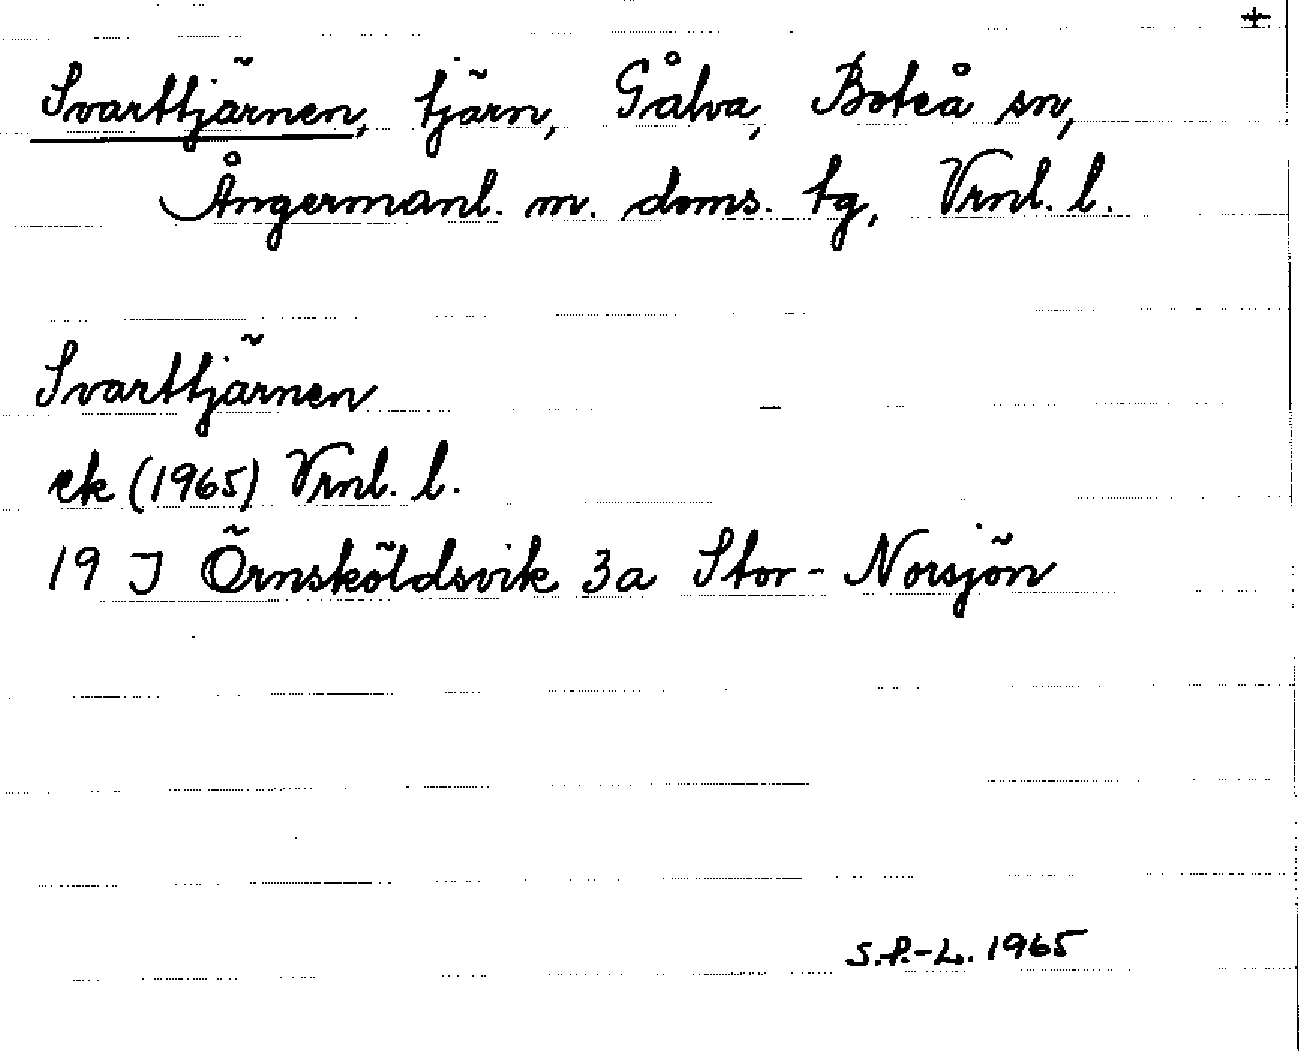 +
Svarttjärnen, tjärn, Gålva, Boteå sn,
Ångermanl. m. doms. tg, Vrnl. l.
Svarttjärnen
ek (1965) Vrnl. l.
19 J Örnsköldsvik 3a Stor-Norsjön
S.P.-L. 1965